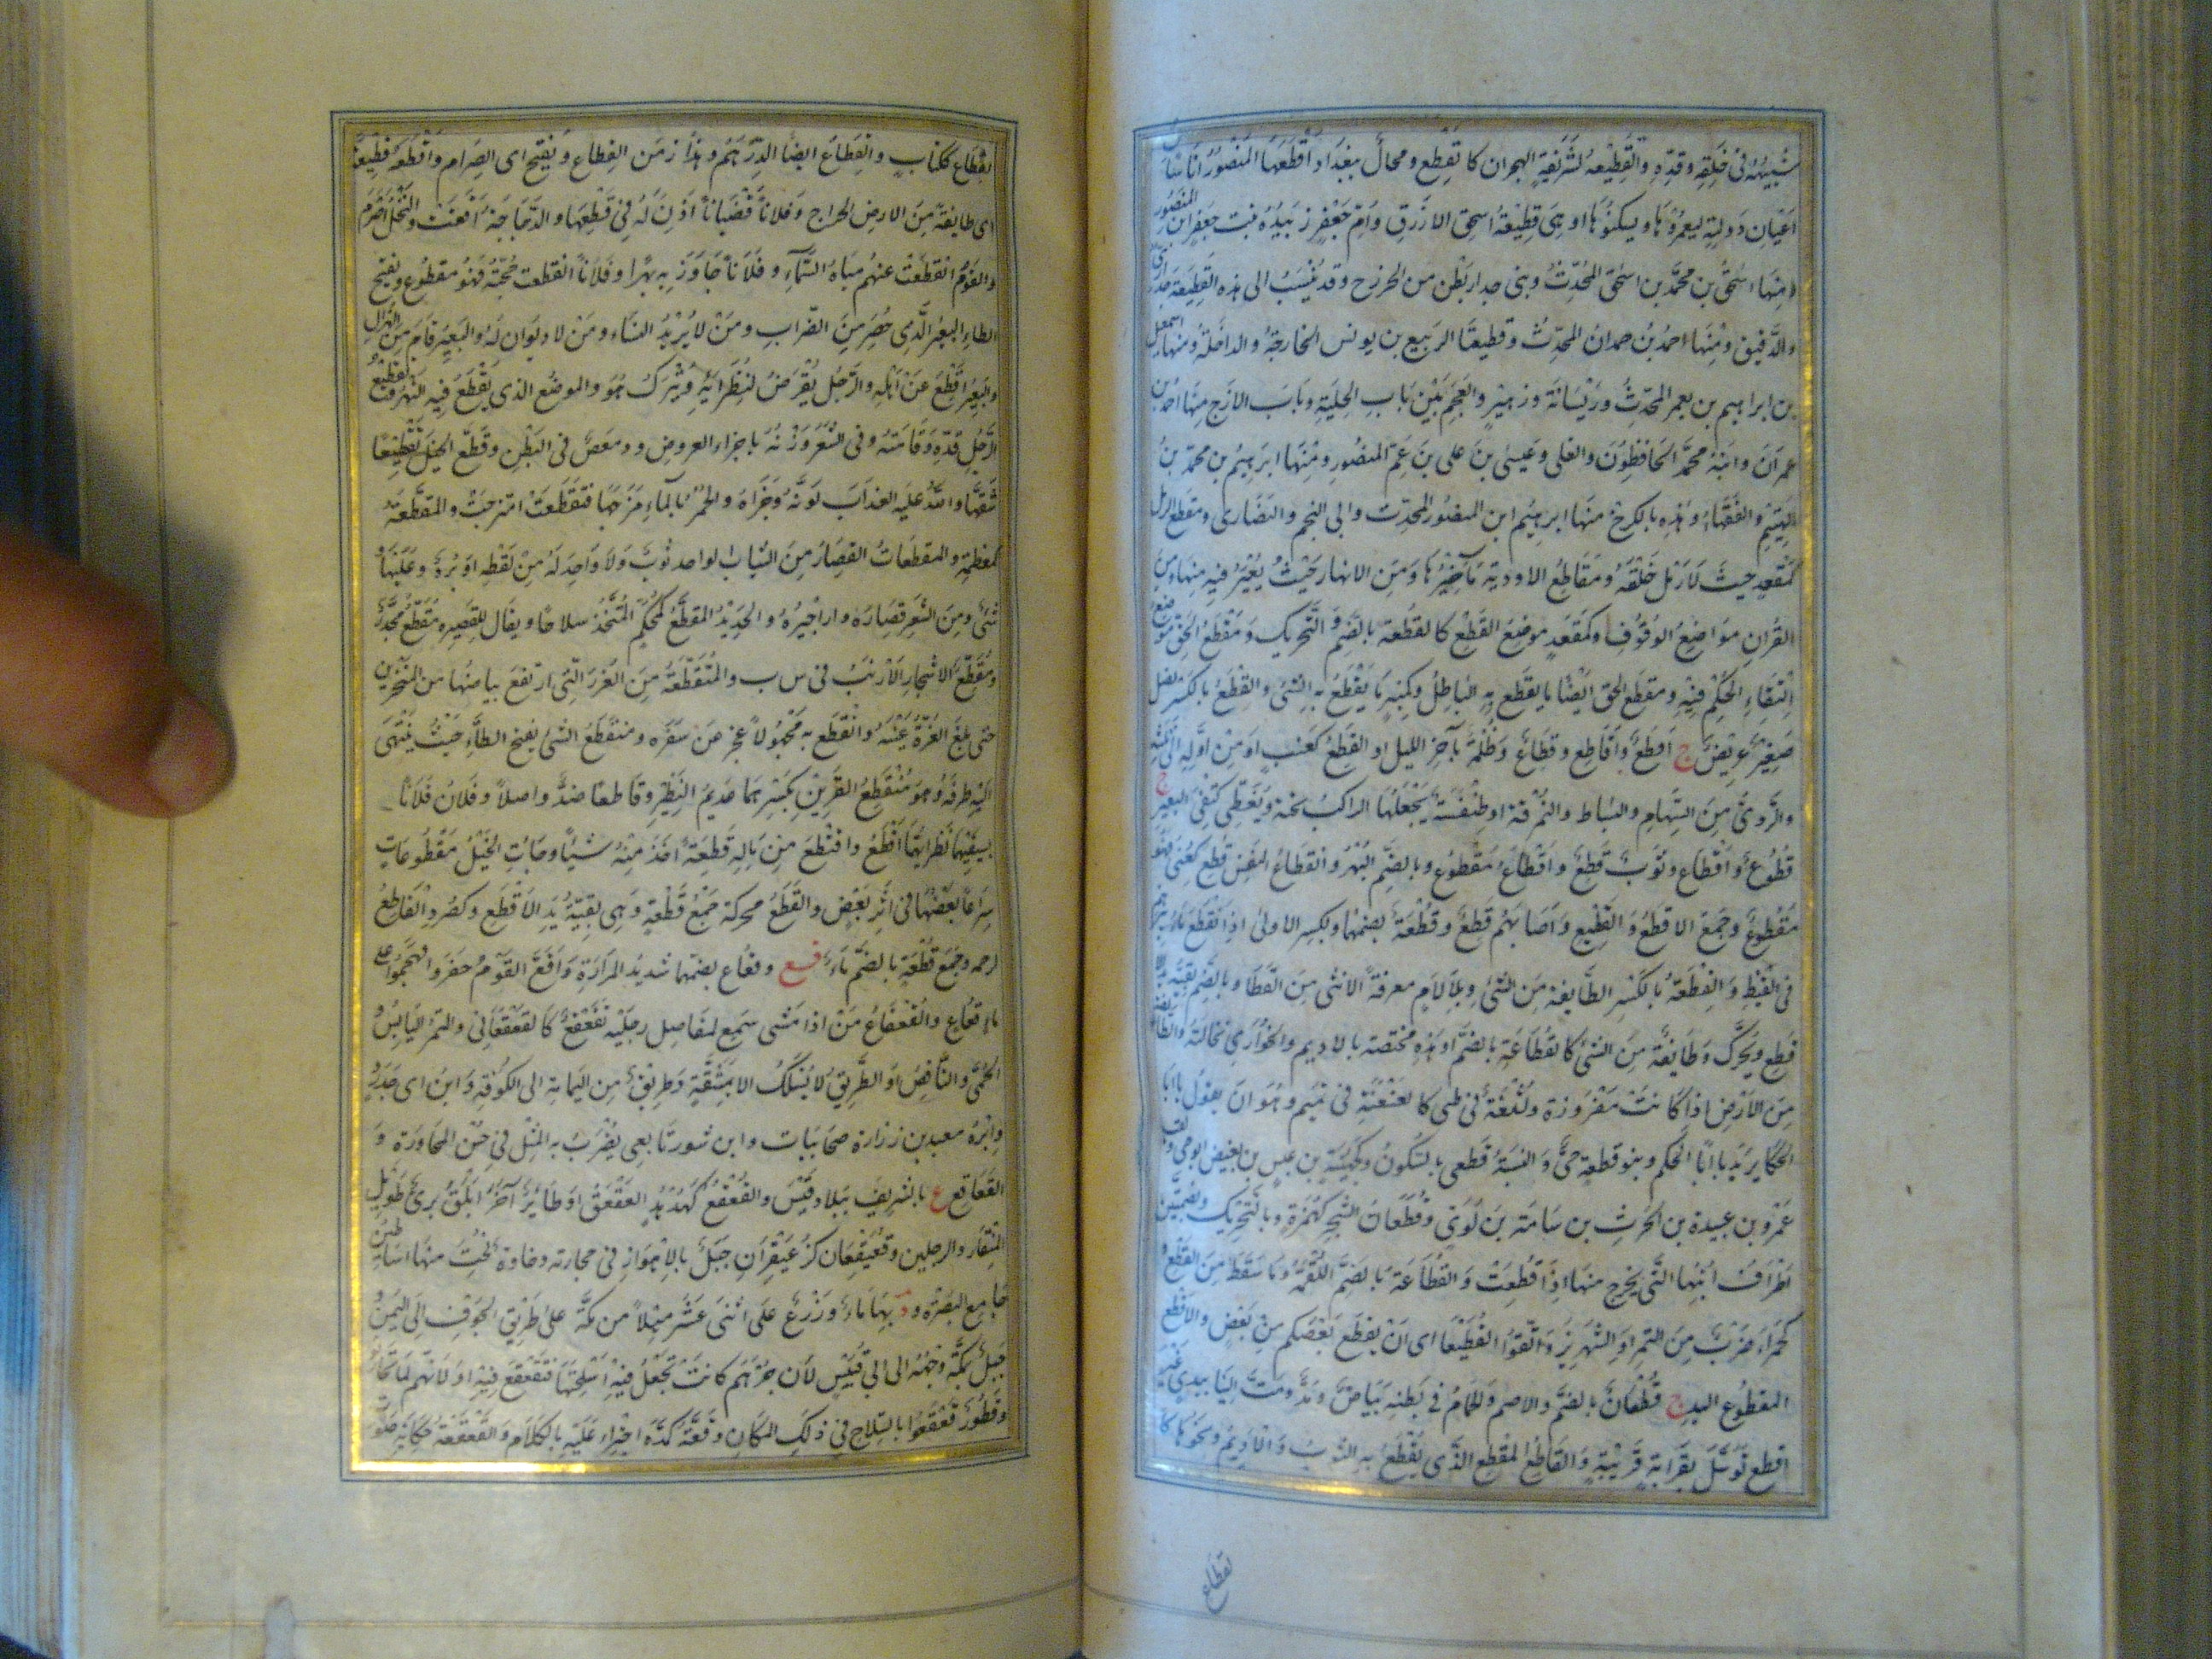 شبيهه في خلقه وقده والقطيعة كشريفة الهجران كالقطع ومحال ببغداد اقطعها المنصور اناسا من
اعيان دولته ليعمروها ويسكنوها وهي قطيعة اسحق الازرق وام جعفر زبيدة بنت جعفر ابن المنصور
ومنها اسحق بن محمد بن اسحق المحدث وبني جدار بطن من الخزرج وقد ينسب الى هذه القطيعة جداري
والدقيق ومنها احمد بن جعفر بن حمدان المحدث وقطيعتا الربيع بن يونس الخارجة والداخلة ومنها اسمعيل
بن ابراهيم بن يعمر المحدث وريسانة وزهير والعجم بين باب الحلبة وباب الازج منها احمد بن
عمر وابنه محمد الحافظون والعلي وعيسى بن علي بن عم المنصور ومنها ابرهيم بن محمد بن
الهيثم والفقهاء وهذه بالكرخ منها ابرهيم ابن المنصور المحدث وابي النجم والنصارى ومقطع الرمل
كمقعد حيث لا رمل خلفه ومقاطع الاودية مآخيرها ومن الانهار حيث يعبر فيه منها ومن
القران مواضع الوقوف وكمقعد موضع القطع كالقطعة بالضم والتحريك ومقطع الحق موضع
التقاء الحكم فيه ومقطع الحق ايضا ما يقطع به الباطل وكمنبر ما يقطع به الشئ والقطع بالكسر نصل
صغير عريض ج اقطع واقاطع وقطاع وظلمة آخر الليل او القطع كعنب او من اوله الى ثلثه
والردئ من السهام والبساط والنمرقة او طنفسة يجعلها الراكب تحته ويغطي كتفي البعير ج
قطوع واقطاع وثوب قطع واقطاع مقطوع وبالضم البهر وانقطاع النفس قطع كعني فهو
مقطوع وجمع الاقطع والقطيع واصابهم قطع وقطعة بضمهما وبكسر الاولى اذا انقطع ماء بئرهم
في القيظ والقطعة بالكسر الطايفة من الشئ وبلا لام معرفة الانثى من القطا وبالضم بقية يد الا
قطع ويحرك وطايفة من الشئ كالقطاعة بالضم او هذه مختصة بالاديم والحوارى نخالته والطايفة
من الارض اذا كانت مفروزة ولثغة في طي كالعنعنة في تميم وهو ان يقول يا ابا
الحكا يريد يا ابا الحكم وبنو قطعة حي والنسبة قطعي بالسكون وكجهينة بن عبس بن بغيض ابو حي ولقب
عمرو بن عبيدة بن الحرث بن سامة بن لؤي وقطعات الشجر كهمزة وبالتحريك وبضمتين
اطراف ابنها التي يخرج منها اذا قطعت والقطاعة بالضم اللقمة وما سقط من القطع
كحمراء ضرب من التمر او الشهريز واتقوا القطيعا اى ان يقطع بعضكم من بعض والاقطع
المقطوع اليد ج قطعان بالضم والاصم والحمام في بطنه بياض ومد ومت اليها بيدي غير
اقطع توسل بقرابة قريبة والقاطع المقطع الذي يقطع به الثوب والاديم ونحوها كا
لقطاع
القطاع ككتاب والقطاع ايضا الدرهم وهذا زمن القطاع ويفتح اى الصرام واقطعه قطيعة
اى طايفة من الارض الخراج وفلانا قضبانا اذن له في قطعها والدجاجة اقفت والنخل اصرم
والقوم انقطعت عنهم مياه السماء وفلانا جاوز به نهرا وفلانا انقطعت حجته فهو مقطع ويفتح
الطاء البعير الذي حسر من الضراب ومن لا يريد النساء ومن لا ديوان له والبعير قام من الهزال
والبعير اقطع عن اهله والرجل يفرض لنظرائه ويترك هو والموضع الذي يقطع فيه النهر وتقطيع
الرجل قده وقامته وفي الشعر وزنه باجزاء العروض ومغص في البطن وقطع الخيل تقطيعا
سبقها والله عليه العذاب لونه وجزاه والخمر بالماء مزجها فتقطعت امتزجت والمقطعة
كمعظمة والمقطعات القصار من الثياب الواحد ثوب ولا واحد له من لفظه او برود عليها و
شئ ومن الشعر قصاره واراجيزه والحديد المقطع كمحكم المتخذ سلاحا ويقال للقصير مقطع مجذر
ومقطع الاشجار الارنب في س ب والمتقطعة من الغرر التي ارتفع بياضها من المنخرين
حتى بلغ الغرة عينيه وانقطع به مجهولا عجز عن سفره ومنقطع الشئ بفتح الطاء حيث ينتهى
اليه طرفه وهو منقطع القرين بكسرهما عديم النظير وقاطعا ضد واصلا وفلان فلانا
بسيفيهما نظرا ايهما اقطع واقتطع من ماله قطعة اخذ منه شيئا وجاءت الخيل مقطوطعات
سراعا بعضها في اثر بعض والقطع محركة جمع قطعة وهي بقية يد الاقطع وكصرد القاطع
لرحمه وجمع قطعة بالضم ماء قعع وقعاع بضمهما شديد المرارة واقع القوم حفروا فهجموا على
ماء قعاع والقعقاع من اذا مشى سمع لمفاصل رجليه تقعقع كالقعقعاني والتمر اليابس و
الحمى والنافض او الطريق لا يسلك الا بمشقة وطريق من اليمامة الى الكوفة وابن ابي حدرد
وابن معبد بن زرارة صحابيات وابن شور تابعي يضرب به المثل في حسن المجاورة و
القعاقع ع بالشريف ببلاد قيس والقعقع كهدهد العقعق او طائر آخر ابلق بري طويل
المنقار والرجلين وقعيقعان كزعيفران جبل بالاهواز في حجارته رخاوة نحتت منها اساطين
جامع البصرة وة بها ماء وزرع على اثنى عشر ميلا من مكة على طريق الجوف الى اليمن و
جبل بمكة وجهه الى ابي قبيس لان جرهم كانت تجعل فيه اسلحتها فتقعقع فيه او لانهم لما تحاربوا
وقطور تقعقعوا بالسلاح في ذلك المكان وقعه كمده اجتراء عليه بالكلام والقعقعة حكاية صوت